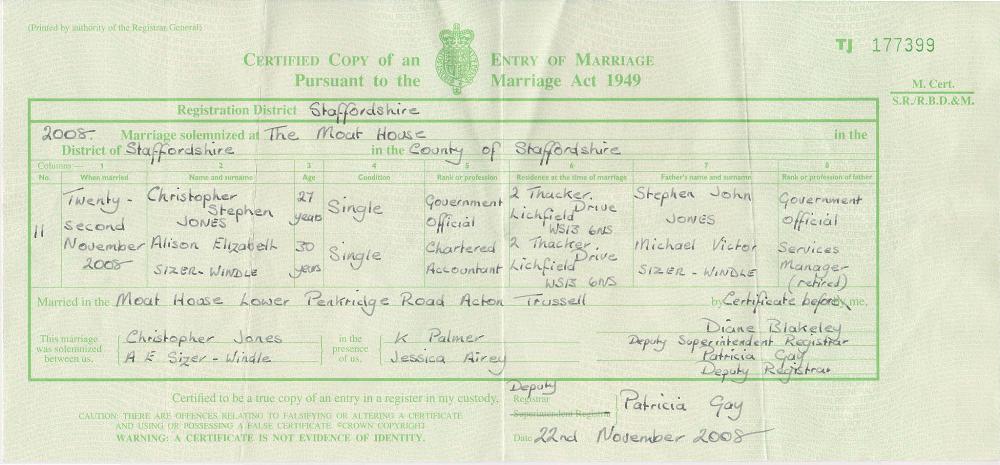 (Printed by authority of the Registrar General)
TJ 177399
CERTIFIED COPY of an ENTRY OF MARRIAGE
Pursuant to the Marriage Act 1949
M. Cert.
S.R./R.B.D.&M.
Registration District Staffordshire
2008. Marriage solemnized at The Moat House in the
District of Staffordshire in the County of Staffordshire
Columns:— 1 2 3 4 5 6 7 8
No. When married Name and surname Age Condition Rank or profession Residence at the time of marriage Father's name and surname Rank or profession of father
11
Twenty-
second
November
2008
Christopher
Stephen
JONES
27
years
Single
Government
Official
2 Thacker.
Drive
Lichfield
WS13 6NS
Stephen John
JONES
Government
Official
Alison Elizabeth
SIZER-WINDLE
30
years
Single
Chartered
Accountant
2 Thacker.
Drive
Lichfield
WS13 6NS
Michael Victor
SIZER-WINDLE
Services
Manager
(retired)
Married in the Moat House Lower Penkridge Road Acton Trussell by Certificate before me,
This marriage
was solemnized
between us,
Christopher Jones
A E Sizer-Windle
in the
presence
of us,
K Palmer
Jessica Airey
Diane Blakeley
Deputy Superintendent Registrar
Patricia Gay
Deputy Registrar
Certified to be a true copy of an entry in a register in my custody.
Deputy
Registrar
Superintendent Registrar
Patricia Gay
CAUTION: THERE ARE OFFENCES RELATING TO FALSIFYING OR ALTERING A CERTIFICATE
AND USING OR POSSESSING A FALSE CERTIFICATE. ©CROWN COPYRIGHT
WARNING: A CERTIFICATE IS NOT EVIDENCE OF IDENTITY.
Date 22nd November 2008